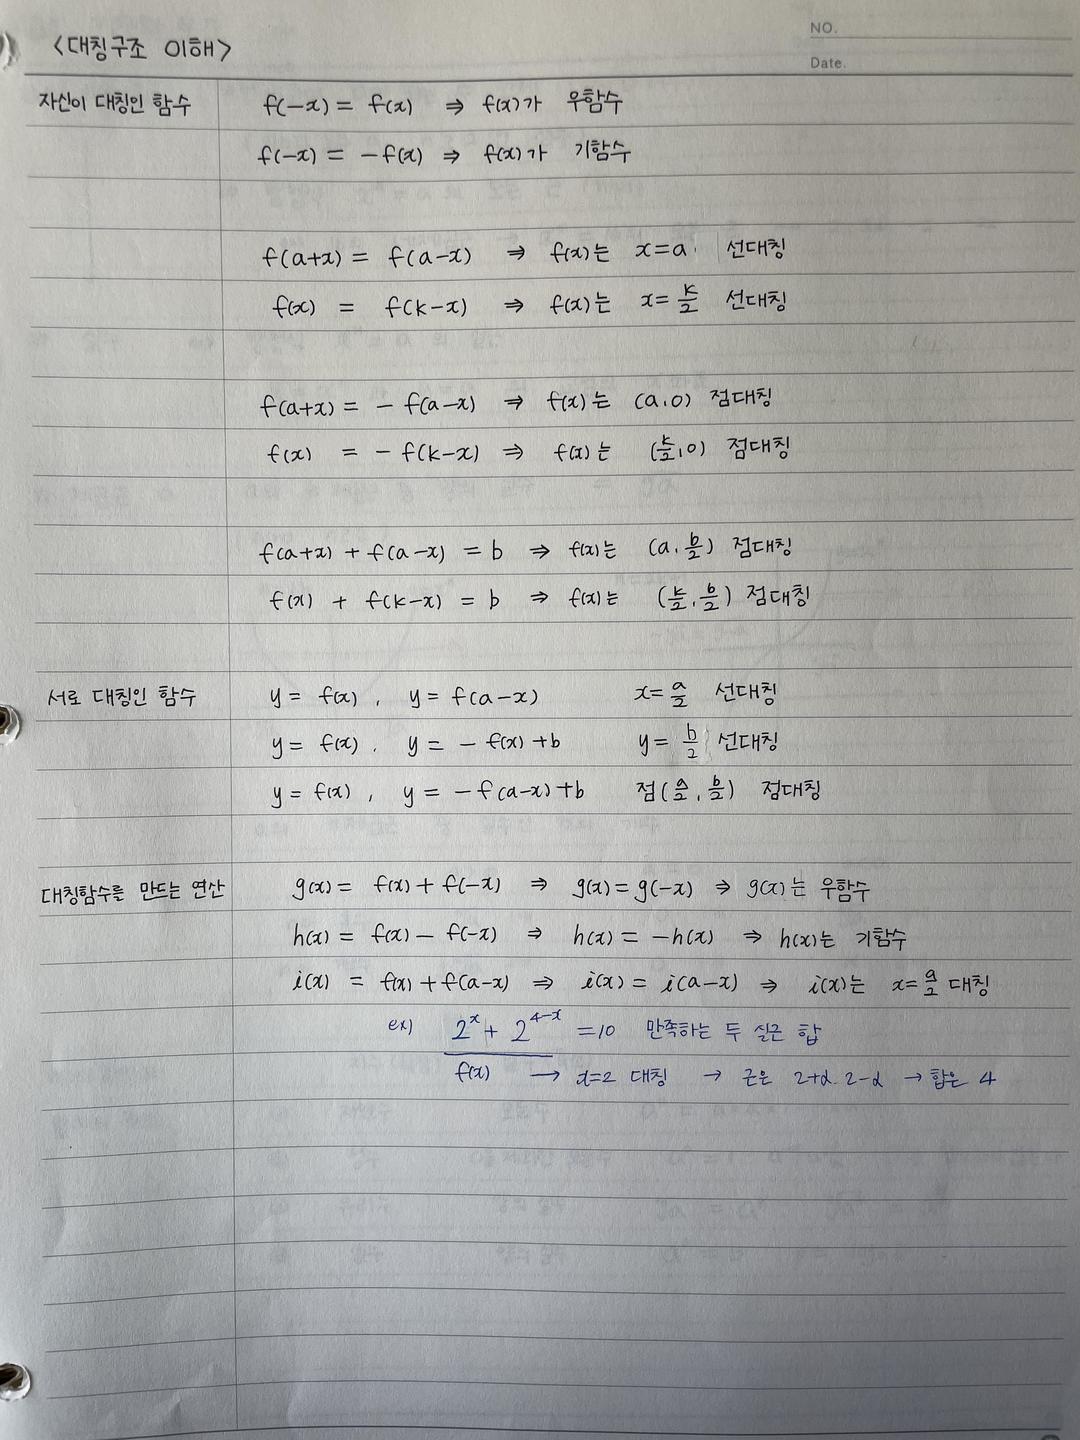 NO.
<대칭구조 이해>
Date.
자신이 대칭인 함수 f(-x) = f(x) ⇒ f(x)가 우함수
f(-x) = -f(x) ⇒ f(x)가 기함수
f(a+x) = f(a-x) ⇒ f(x)는 x=a 선대칭
f(x) = f(k-x) ⇒ f(x)는 x=k/2 선대칭
f(a+x) = -f(a-x) ⇒ f(x)는 (a,0) 점대칭
f(x) = -f(k-x) ⇒ f(x)는 (k/2,0) 점대칭
f(a+x) + f(a-x) = b ⇒ f(x)는 (a, b/2) 점대칭
f(x) + f(k-x) = b ⇒ f(x)는 (k/2, b/2) 점대칭
서로 대칭인 함수 y = f(x), y = f(a-x) x=a/2 선대칭
y = f(x), y = -f(x)+b y=b/2 선대칭
y = f(x), y = -f(a-x)+b 점(a/2, b/2) 점대칭
대칭함수를 만드는 연산 g(x) = f(x)+f(-x) ⇒ g(x)=g(-x) ⇒ g(x)는 우함수
h(x) = f(x)-f(-x) ⇒ h(x) = -h(x) ⇒ h(x)는 기함수
i(x) = f(x)+f(a-x) ⇒ i(x) = i(a-x) ⇒ i(x)는 x=a/2 대칭
ex) 2^x + 2^(4-x) = 10 만족하는 두 실근 합
f(x) → x=2 대칭 → 근은 2+α, 2-α → 합은 4